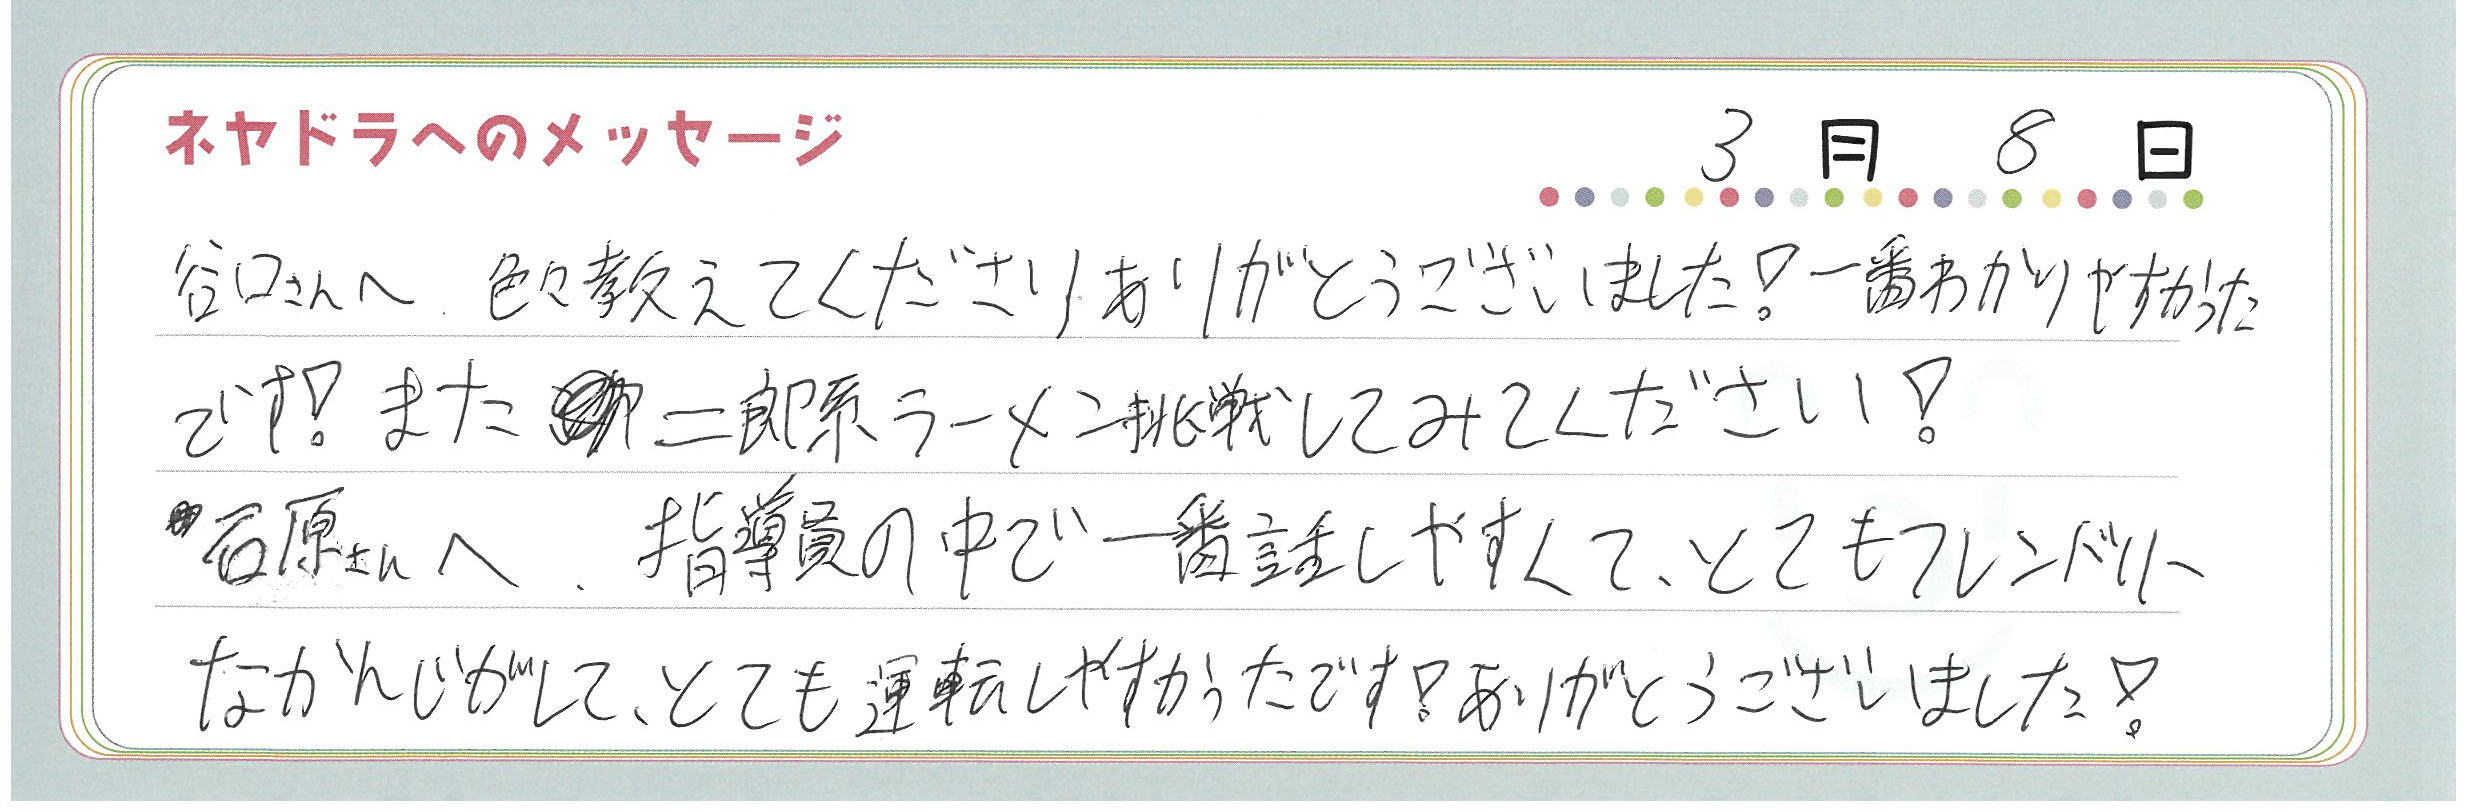 ネヤドラへのメッセージ
3月 8日
谷口さんへ 色々教えてくださりありがとうございました!一番わかりやすかった
です!また二郎系ラーメン挑戦してみてください!
石原さんへ、指導員の中で一番話しやすくて、とてもフレンドリー
なかんじがして、とても運転しやすかったです!ありがとうございました!